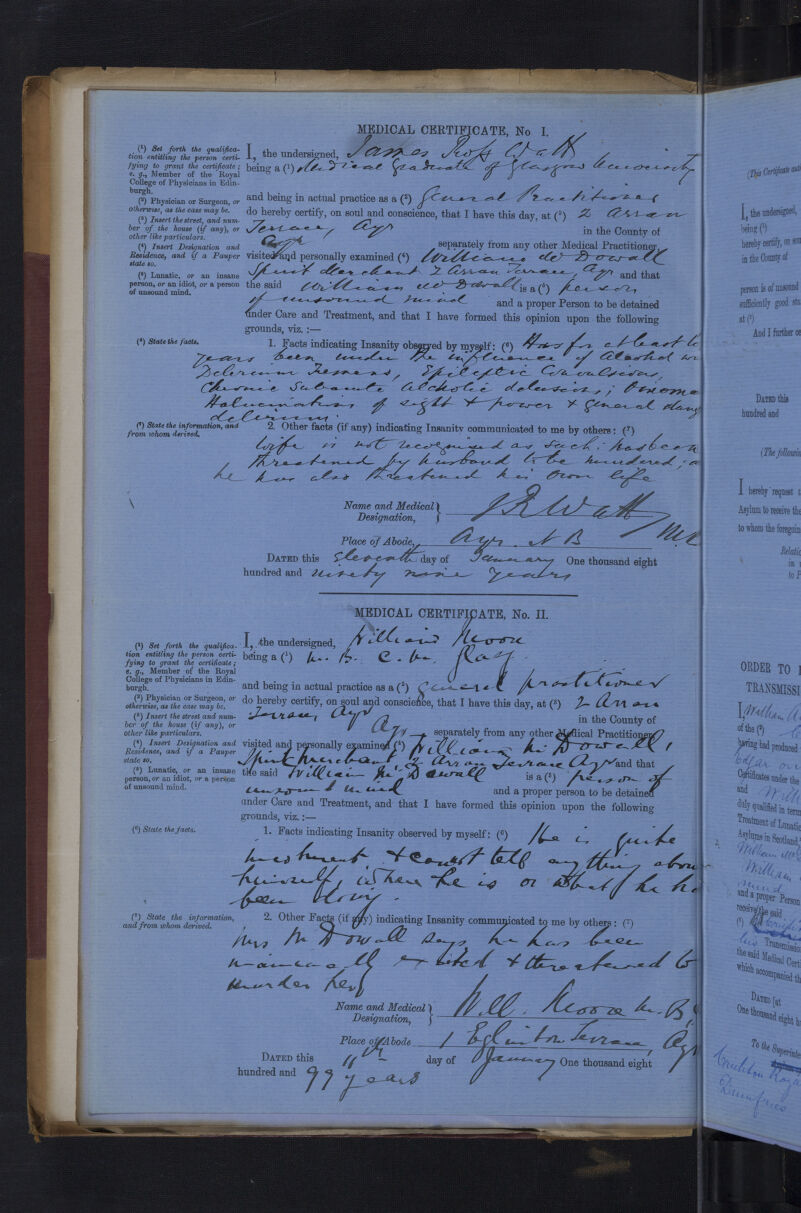 MEDICAL CERTIFICATE, No I.
(¹) Set forth the qualifica-
tion entitling the person certi-
fying to grant the certificate;
e. g., Member of the Royal
College of Physicians in Edin-
burgh.
(²) Physician or Surgeon, or
otherwise, as the case may be.
(³) Insert the street, and num-
ber of the house (if any), or
other like particulars.
(⁴) Insert Designation and
Residence, and if a Pauper
state so.
(⁵) Lunatic, or an insane
person, or an idiot, or a person
of unsound mind.
I, the undersigned, James Ross Watt
being a (¹) Medical Graduate of Glasgow University
and being in actual practice as a (²) General Practitioner
do hereby certify, on soul and conscience, that I have this day, at (³) 2 Arran
Terrace, Ayr in the County of
Ayr separately from any other Medical Practitioner,
visited and personally examined (⁴) William McDowall
Spirit Merchant 2 Arran Terrace, Ayr and that
the said William McDowall is a (⁵) person
of unsound mind and a proper Person to be detained
under Care and Treatment, and that I have formed this opinion upon the following
grounds, viz. :—
(⁶) State the facts.
1. Facts indicating Insanity observed by myself: (⁶) Has for at least
years been under the influence of Alcohol
Delerium Tremens, Epileptic Convulsions,
Chronic Subacute Alcoholic delusions;
Halucinations of sight + power + general
delirium.
(⁷) State the information, and
from whom derived.
2. Other facts (if any) indicating Insanity communicated to me by others: (⁷)
Wife is not recognised as such: has been
threatened by husband to be murdered;
he has also threatened his own life
Name and Medical
Designation, J R Watt
Place of Abode, Ayr. N B
DATED this Eleventh day of January One thousand eight
hundred and ninety nine years
MEDICAL CERTIFICATE, No. II.
(¹) Set forth the qualifica-
tion entitling the person certi-
fying to grant the certificate;
e. g., Member of the Royal
College of Physicians in Edin-
burgh.
(²) Physician or Surgeon, or
otherwise, as the case may be.
(³) Insert the street and num-
ber of the house (if any), or
other like particulars.
(⁴) Insert Designation and
Residence, and if a Pauper
state so.
(⁵) Lunatic, or an insane
person, or an idiot, or a person
of unsound mind.
I, the undersigned, William Moore
being a (¹) M. B. C. M. Glasg.
and being in actual practice as a (²) general practitioner
do hereby certify, on soul and conscience, that I have this day, at (³) 2 Arran
Terrace, Ayr in the County of
Ayr separately from any other Medical Practitioner,
visited and personally examined (⁴) William McDowall,
Spirit Merchant, 2 Arran Terrace Ayr and that
the said William McDowall is a (⁵) person of
unsound mind and a proper person to be detained
under Care and Treatment, and that I have formed this opinion upon the following
grounds, viz. :—
(⁶) State the facts.
1. Facts indicating Insanity observed by myself: (⁶) He is quite
incoherent, + cannot tell anything about
himself, where he is or what he
been doing.
(⁷) State the information,
and from whom derived.
2. Other Facts (if any) indicating Insanity communicated to me by others: (⁷)
Mrs McDowall says he has been
maniacally excited + threatened to
murder her
Name and Medical
Designation, Will. Moore M. B.
Place of Abode 1 Eglinton Terrace, Ayr
DATED this 11th day of January One thousand eight
hundred and 99 years
I, the undersigned,
being (¹)
hereby certify, on
in the County of
person is of unsound
sufficiently good
at (³)
And I further
DATED this
hundred and
(The following
I hereby request
Asylum to receive the
to whom the foregoing
ORDER TO
I, William
of the (²)
having had produced
Certificates under the
and
duly qualified in
Treatment of Lunatic
Asylums in Scotland
William
William
mind
and a proper Person
receive the said
Transmission
the said Medical
which accompanied
DATED [at
One thousand eight
To the
Crichton
Dumfries